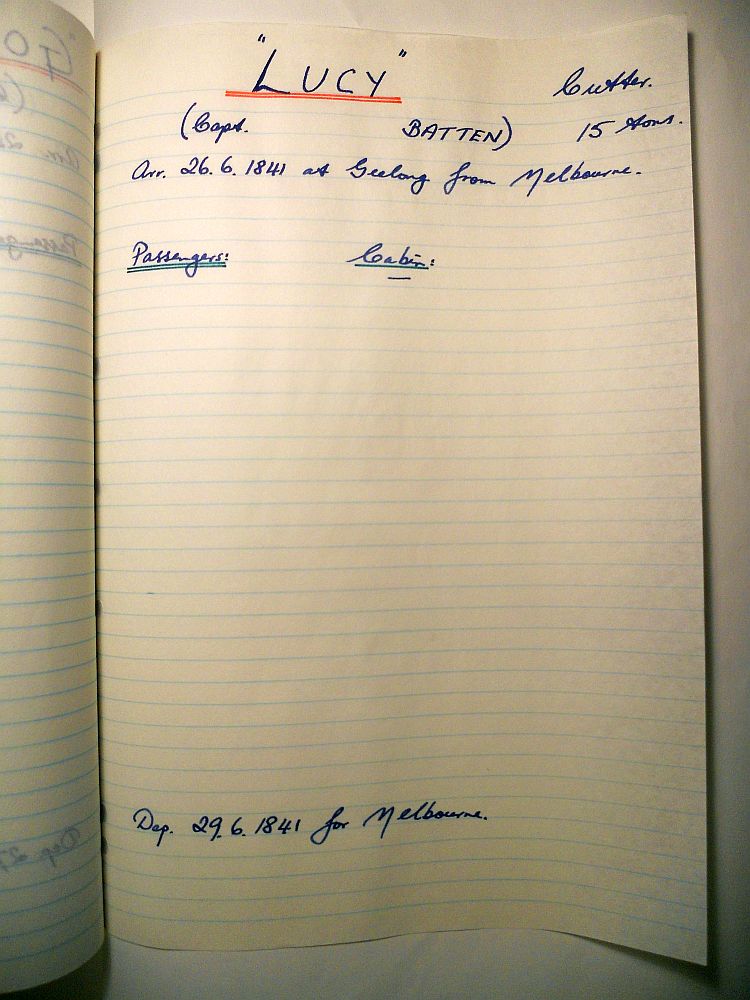 "LUCY" Cutter.
(Capt. BATTEN) 15 tons.
Arr. 26.6.1841 at Geelong from Melbourne.
Passengers: Cabin:
—
Dep. 29.6.1841 for Melbourne.